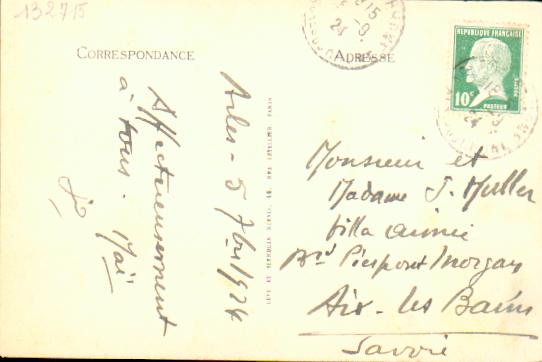 132715
CORRESPONDANCE
ADRESSE
RÉPUBLIQUE FRANÇAISE
10c
PASTEUR
Arles - 5 7bre 1924
Affectueusement
à tous.
LEVY ET NEURDEIN RÉUNIS, 44, RUE LETELLIER, PARIS
Monsieur et
Madame J. Muller
Villa Aimée
Bd Pierpont Morgan
Aix-les Bains
Savoie